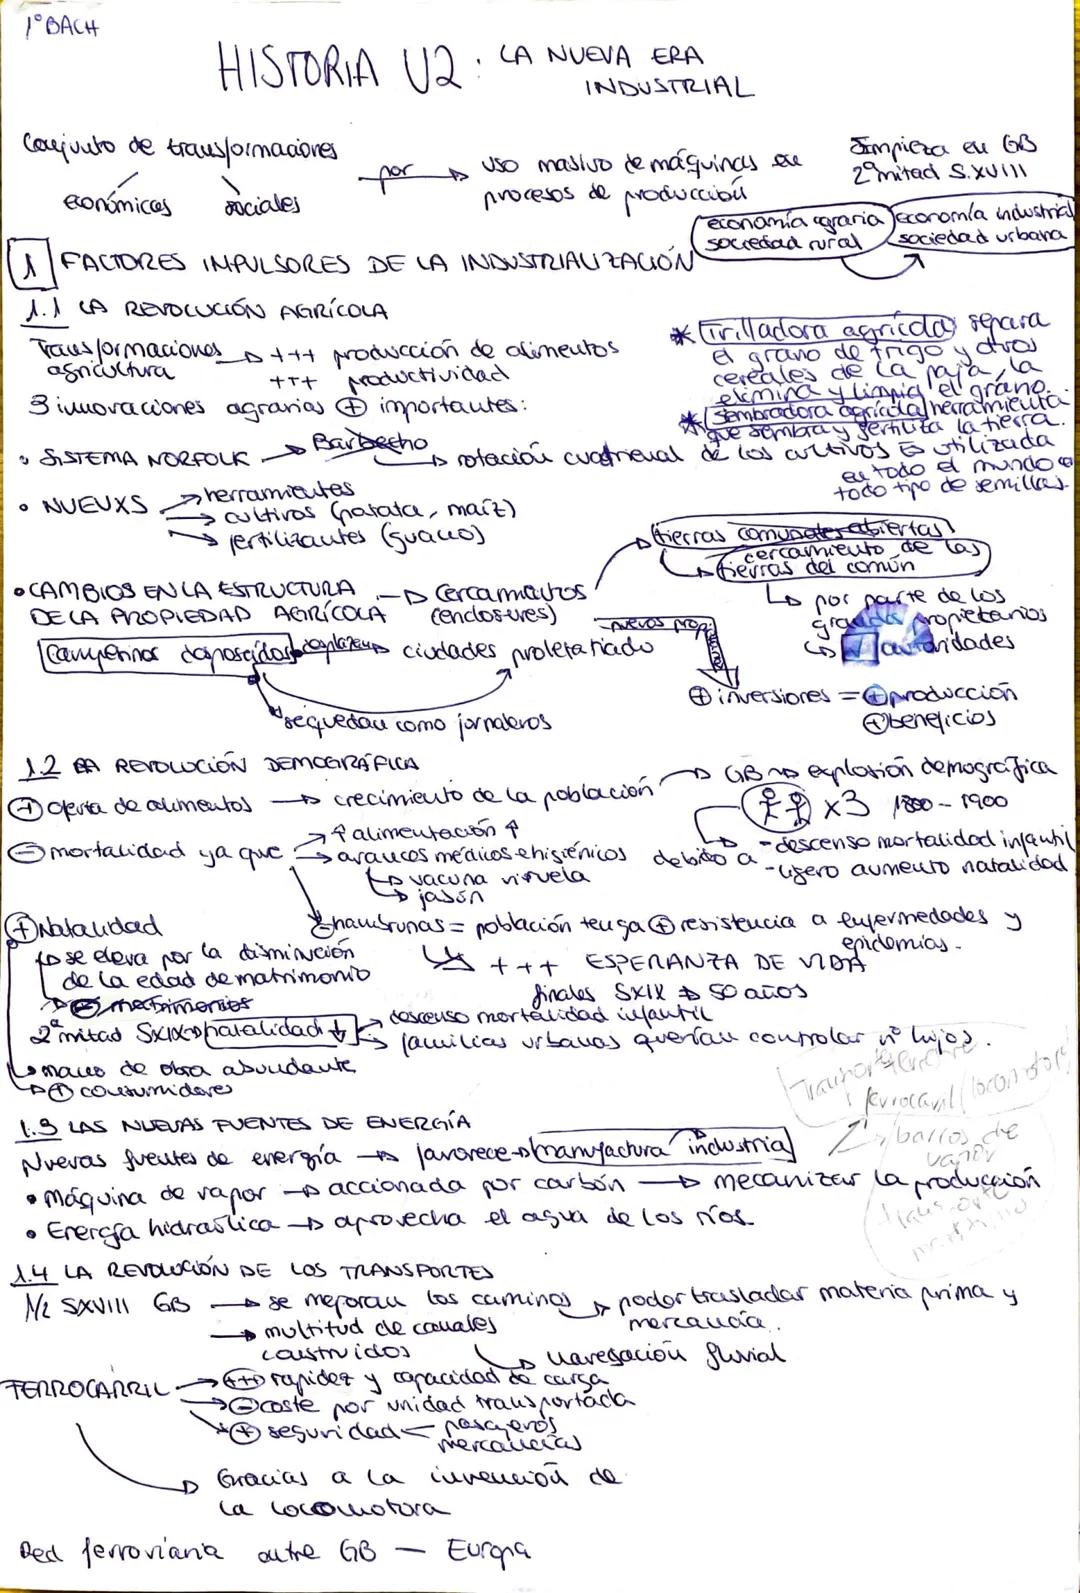 1º BACH
HISTORIA U2: LA NUEVA ERA
INDUSTRIAL
Conjunto de transformaciones
económicas sociales
por
uso masivo de máquinas en
procesos de producción
Empieza en GB
2ª mitad S.XVIII
economía agraria
sociedad rural
economía industrial
sociedad urbana
1 FACTORES IMPULSORES DE LA INDUSTRIALIZACIÓN
1.1 LA REVOLUCIÓN AGRÍCOLA
Transformaciones
agricultura
+++ producción de alimentos
+++ productividad
3 innovaciones agrarias + importantes:
* Trilladora agrícola separa
el grano de trigo y otros
cereales de la paja, la
elimina y limpia el grano.
* Sembradora agrícola herramienta
que sembra y fertiliza la tierra.
Es utilizada
en todo el mundo
todo tipo de semillas.
• SISTEMA NORFOLK → Barbecho
rotación cuatrienal de los cultivos
• NUEVXS → herramientas
→ cultivos (patata, maíz)
→ fertilizantes (guano)
• CAMBIOS EN LA ESTRUCTURA
DE LA PROPIEDAD AGRÍCOLA
→ Cercamientos
(enclosures)
tierras comunales abiertas
cercamiento de las
tierras del común
por parte de los
grandes propietarios
autoridades
campesinos desposeídos desplazan ciudades proletariado
se quedan como jornaleros
nuevos prop.
+ inversiones = + producción
+ beneficios
1.2 LA REVOLUCIÓN DEMOGRÁFICA
+ oferta de alimentos → crecimiento de la población
GB → explosión demográfica
x3 1800-1900
debido a
- descenso mortalidad infantil
- ligero aumento natalidad
- mortalidad ya que
↑ alimentación ↑
avances médicos e higiénicos
vacuna viruela
jabón
- hambrunas = población tenga + resistencia a enfermedades y
epidemias.
+++ ESPERANZA DE VIDA
finales SXIX → 50 años
+ Natalidad
se eleva por la disminución
de la edad de matrimonio
matrimonios
2ª mitad SXIX → natalidad ↓
descenso mortalidad infantil
familias urbanas querían controlar nº hijos.
mano de obra abundante
+ consumidores
1.3 LAS NUEVAS FUENTES DE ENERGÍA
Nuevas fuentes de energía → favorece → manufactura industrial
• Máquina de vapor → accionada por carbón → mecanizar la producción
• Energía hidraúlica → aprovecha el agua de los ríos.
Transporte terrestre
ferrocarril / locomotora
barcos de
vapor
transporte
marítimo
1.4 LA REVOLUCIÓN DE LOS TRANSPORTES
1/2 SXVIII GB → se mejoran los caminos
poder trasladar materia prima y
mercancía.
→ multitud de canales
construidos
navegación fluvial
FERROCARRIL → ++ rapidez y capacidad de carga
→ - coste por unidad transportada
→ + seguridad < pasajeros
mercancías
Gracias a la invención de
la locomotora
Red ferroviaria entre GB — Europa